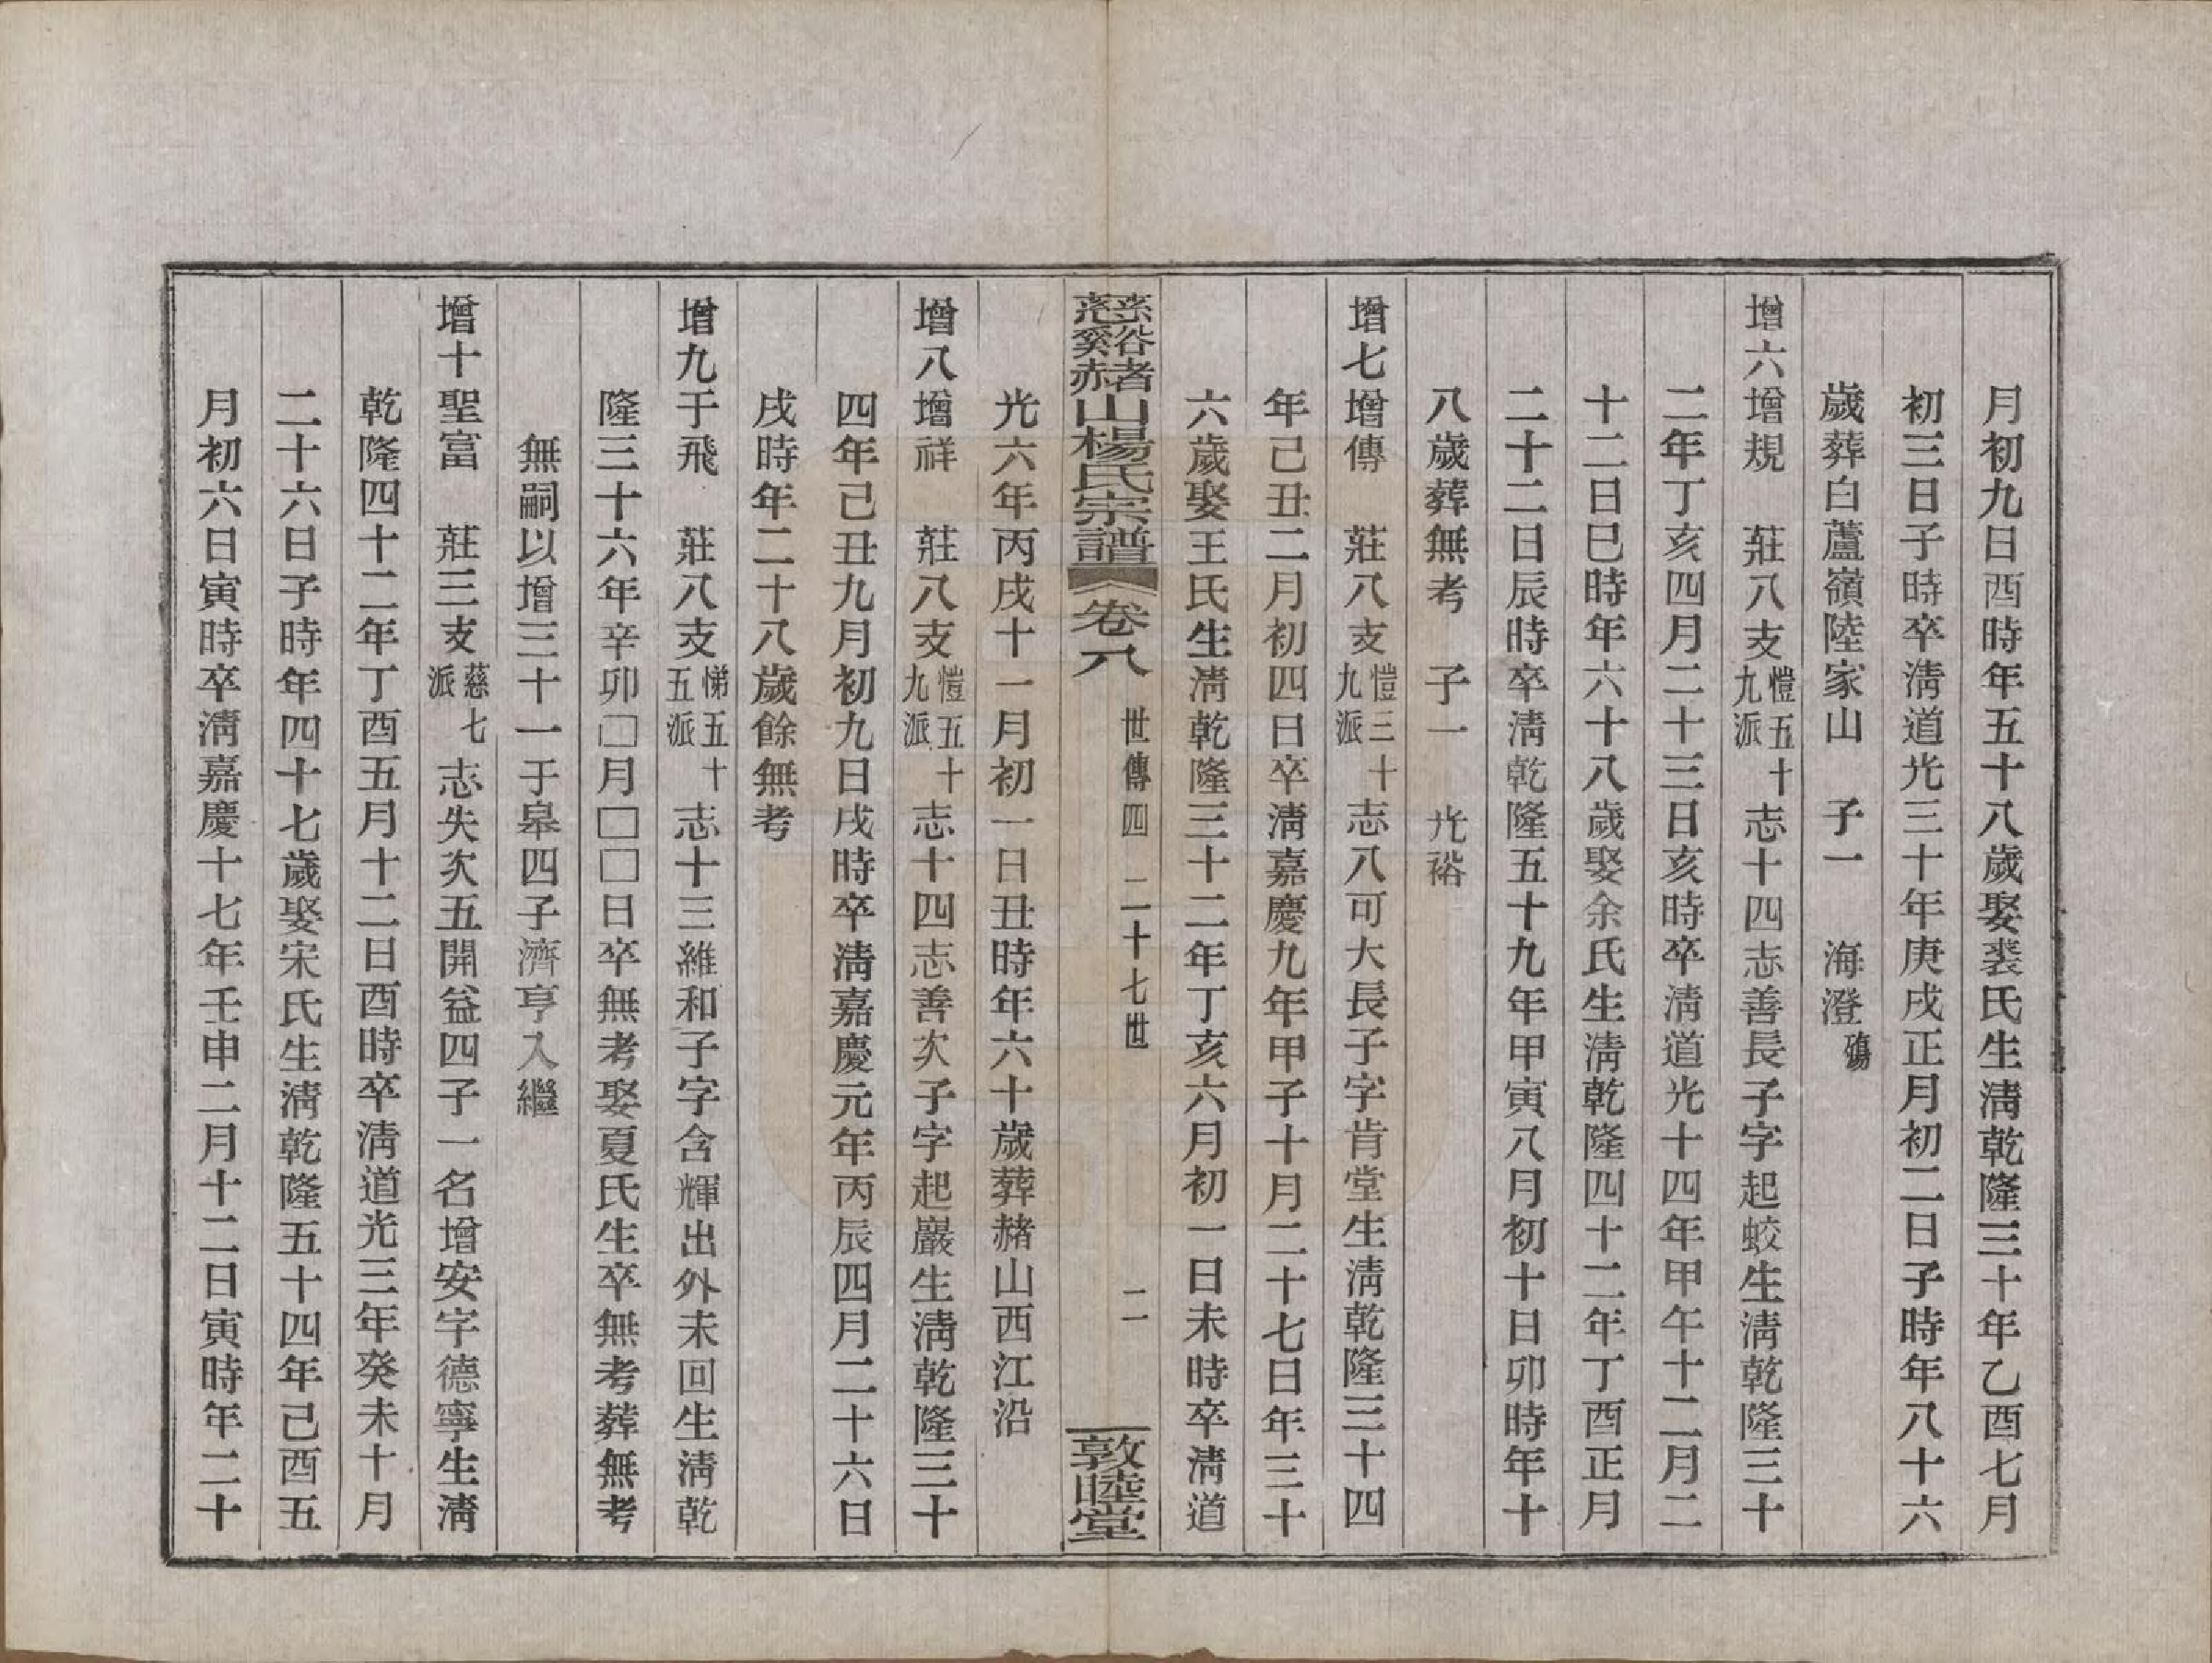 月初九日酉時年五十八歲娶裘氏生淸乾隆三十年乙酉七月
初三日子時卒淸道光三十年庚戌正月初二日子時年八十六
歲葬白蘆嶺陸家山　子一　海澄殤
增六增規　莊八支愷五十九派志十四志善長子字起蛟生淸乾隆三十
二年丁亥四月二十三日亥時卒淸道光十四年甲午十二月二
十二日巳時年六十八歲娶余氏生淸乾隆四十二年丁酉正月
二十二日辰時卒淸乾隆五十九年甲寅八月初十日卯時年十
八歲葬無考　子一　光裕
增七增傳　莊八支愷三十九派志八可大長子字肯堂生淸乾隆三十四
年己丑二月初四日卒淸嘉慶九年甲子十月二十七日年三十
六歲娶王氏生淸乾隆三十二年丁亥六月初一日未時卒淸道
慈谿赭山楊氏宗譜　卷八　世傳四　二十七世　二　敦睦堂
光六年丙戌十一月初一日丑時年六十歲葬赭山西江沿
增八增祥　莊八支愷五十九派志十四志善次子字起巖生淸乾隆三十
四年己丑九月初九日戌時卒淸嘉慶元年丙辰四月二十六日
戌時年二十八歲餘無考
增九于飛　莊八支悌五十五派志十三維和子字含輝出外未回生淸乾
隆三十六年辛卯□月□□日卒無考娶夏氏生卒無考葬無考
無嗣以增三十一于皋四子濟亨入繼
增十聖富　莊三支慈七派志失次五開益四子一名增安字德寧生淸
乾隆四十二年丁酉五月十二日酉時卒淸道光三年癸未十月
二十六日子時年四十七歲娶宋氏生淸乾隆五十四年己酉五
月初六日寅時卒淸嘉慶十七年壬申二月十二日寅時年二十